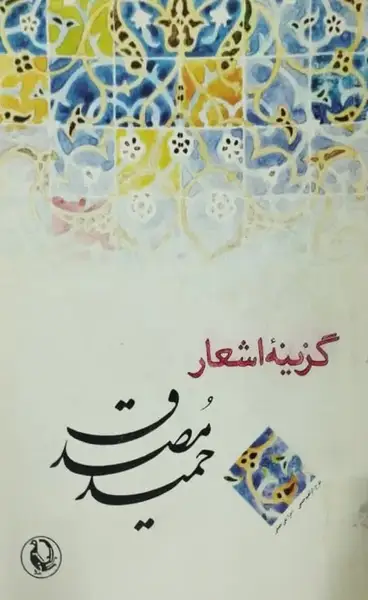 گزینهٔ اشعار
حمید مصدق